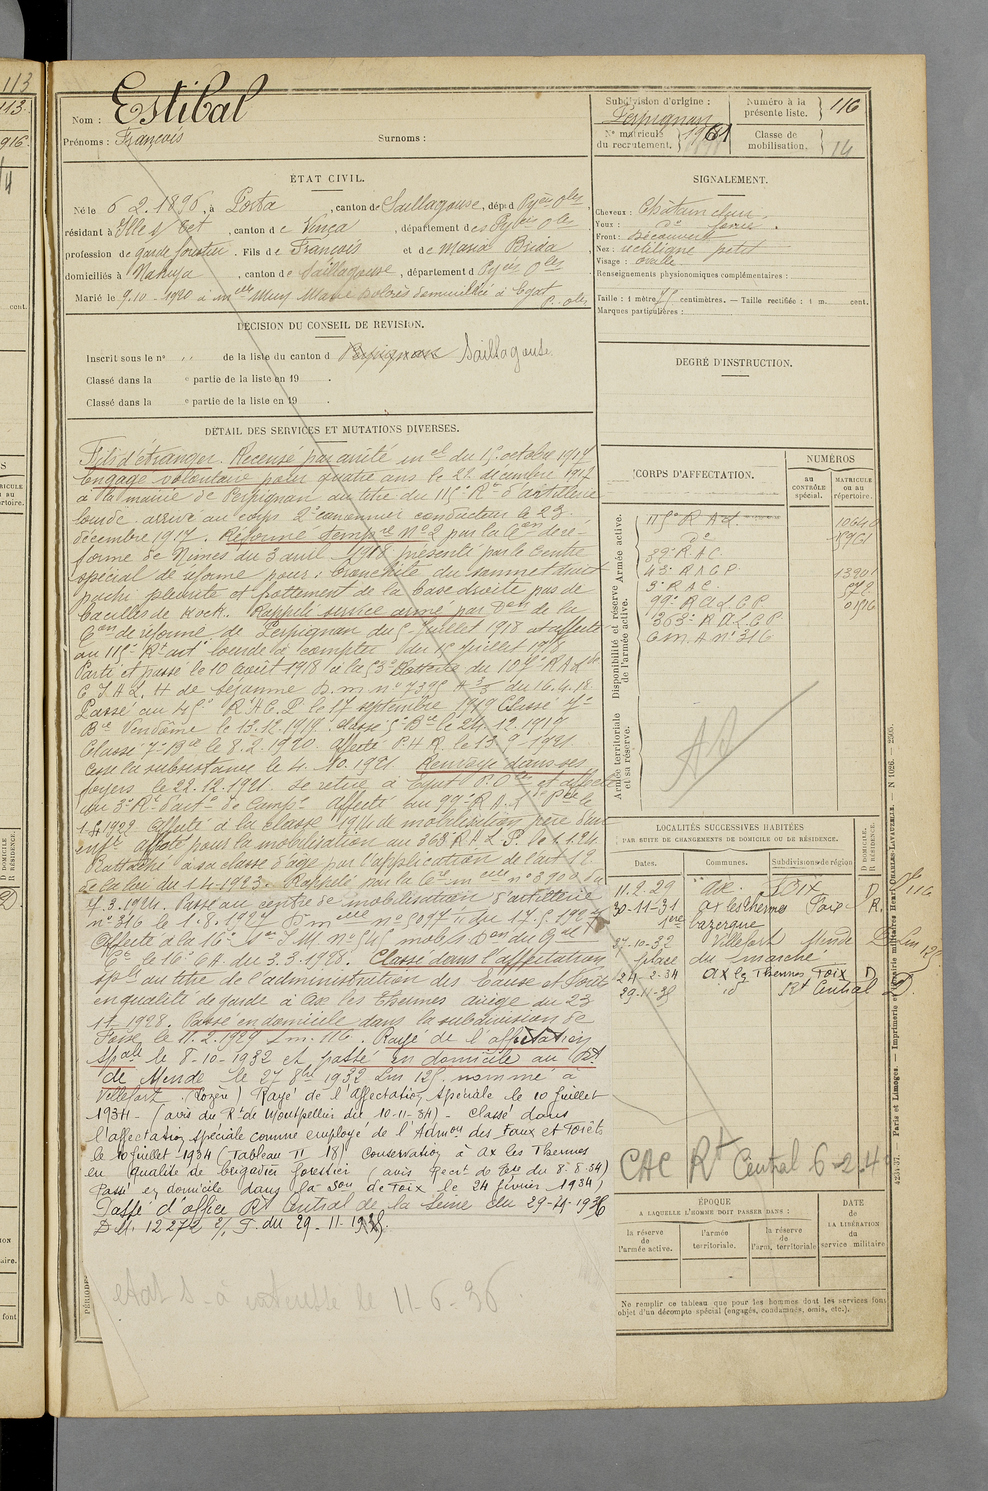 113
113.
916.
Nom : Estibal
Prénoms : François Surnoms :
Subdivision d'origine :
Perpignan
Nº matricule du recrutement. 1961
Numéro à la présente liste. 116
Classe de mobilisation. 14
ÉTAT CIVIL.
Né le 6 2. 1896, à Porta, canton de Saillagouse, dépt d Pyées Oles,
résidant à Ille s Tet, canton de Vinça, département des Pyées Oles
profession de garde forestier. Fils de François et de Maria Brida
domiciliés à Nahuja, canton de Saillagouse, département d Pyées Oles
Marié le 9.10.1920 à melle Muy Marie Dolorès domiciliée à Egat
P. Oles
SIGNALEMENT.
Cheveux : Châtain clair.
Yeux :
Front : Découvert
Nez : rectiligne petit
Visage : ovale
Renseignements physionomiques complémentaires :
Taille : 1 mètre 75 centimètres. — Taille rectifiée : 1 m. cent.
Marques particulières :
DÉCISION DU CONSEIL DE REVISION.
Inscrit sous le nº de la liste du canton d Perpignan Saillagouse
Classé dans la e partie de la liste en 19 .
Classé dans la e partie de la liste en 19 .
DEGRÉ D'INSTRUCTION.
DÉTAIL DES SERVICES ET MUTATIONS DIVERSES.
Fils d'étranger. Recensé par arrêté mel du 15 octobre 1917
Engagé volontaire pour quatre ans le 22 décembre 1917
à la mairie de Perpignan au titre du 115e Rt d'artillerie
lourde. arrivé au corps 2e canonnier conducteur le 23
décembre 1917. Réformé tempre Nº 2 par la Con de ré-
forme de Nimes du 3 avril 1918 présenté par le centre
spécial de réforme pour : bronchite du sommet droit
pachi pleurite et frottement de la base droite pas de
bacilles de Kock. Rappelé service armé par Don de la
Con de réforme de Perpignan du 5 juillet 1918 et affecté
au 115e Rt arte lourde à compter du 15 juillet 1918
Parti et passé le 10 août 1918 à la 53e Batterie du 107e R A Lde
C I A L. H de Sézanne D. m nº 7395 A 3/3 du 16.4.18.
Passé au 45e R A C. P le 17 septembre 1919 Classé 7e
Bie Vendôme le 13.12.1919. classé 5e Bie le 24.12.1919
Classé 7e Bie le 8.2.1920. affecté P. H R. le 13.5.1921.
Cesse la subsistance le 4.10.921. Renvoyé dans ses
foyers le 22.12.1921. Se retire à Egat P. Oles et affecté
au 3e Rt d'arte de campe Affecté au 99e R A L Pce le
1.4.1922 Affecté à la classe 1914 de mobilisation père d'un
enft. affecté pour la mobilisation au 363 R A L P. le 1.1.24
Rattaché à sa classe d'âge par l'application de l'art 12
de la loi du 1.4.1923. Rappelé par la Cre melle nº 3900 du
7.3.1924. Passé au centre de mobilisation d'artillerie
nº 316 le 1.8.1927 D melle nº 5097 du 17.5.1927
Affecté à la 16e Son I M. nº 545 mobls Don du Gal
Ct le 16e C A. du 3.3.1928. Classé dans l'affectation
sple au titre de l'administration des Eaux et Forêts
en qualité de garde à Ax les Thermes Ariège du 23
11.1928. Passé en domicile dans la subdivision de
Foix le 11.2.1929 Lm. 116. Rayé de l'affectation
spale le 8-10-1932 et passé en domicile au Rt
de Mende le 27 8bre 1932 Lm 125. nommé à
Villefort (Lozère) Rayé de l'affectation spéciale le 10 juillet
1934 - (avis du Rt de Montpellier du 10-11-34) - classé dans
l'affectation spéciale comme employé de l'Admon des Eaux et Forêts
le 10 juillet 1934 (Tableau II 18) conservation à Ax les Thermes
en qualité de brigadier forestier (avis Recrt de du 8-8-34)
Passé en domicile dans la Son de Foix le 24 février 1934)
Passé d'office Rt Central de la Seine du 29-11-1936
D.M. 12272 2/ T. du 29-11-1935.
PÉRIODES
état S - à intéresse le 11-6-36
CORPS D'AFFECTATION.
NUMÉROS
au CONTRÔLE spécial.
MATRICULE ou au répertoire.
Disponibilité et réserve de l'armée active. Armée active.
Armée territoriale et sa réserve.
115e R A L. 10640
de 15961
39e R A C
43e R A C P. 13201
3e R A C. 572
99e R A L C P 01916
363e R A L C P
C m. A nº 316
AS
LOCALITÉS SUCCESSIVES HABITÉES
PAR SUITE DE CHANGEMENTS DE DOMICILE OU DE RÉSIDENCE.
Dates. Communes. Subdivisions de région D DOMICILE. R RÉSIDENCE.
11.2.29 Ax. Foix D Lm 116
30-11-31 Ax les Thermes Foix R.
1 rue Lazergue
27-10-32 Villefort Mende D Lm 125
place du marché
24-2-34 Ax les Thermes Foix D
29-11-35 id Rt Central D.
CAC Rt Central 6-2-4
ÉPOQUE
A LAQUELLE L'HOMME DOIT PASSER DANS :
la réserve de l'armée active.
l'armée territoriale.
la réserve de l'arm. territoriale
DATE de LA LIBÉRATION du service militaire
Ne remplir ce tableau que pour les hommes dont les services font
l'objet d'un décompte spécial (engagés, condamnés, omis, etc.).
Paris et Limoges. — Imprimerie et librairie militaires Henri CHARLES-LAVAUZELLE. — N 1026.